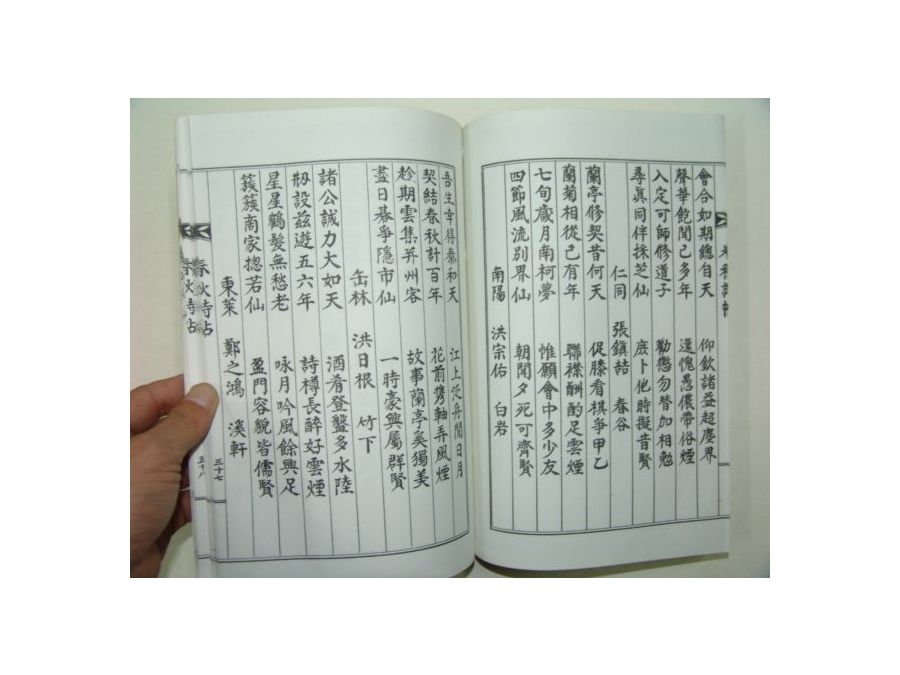 會合如期總自天 仰欽諸益超塵界
聲華飽聞已多年 還愧愚儂帶俗煙
入定可師修道子 勸懲勿替加相勉
尋眞同伴採芝仙 庶卜他時擬昔賢
仁同 張鎭喆 春谷
蘭亭修契昔何天 促膝看棋爭甲乙
蘭菊相從已有年 聯襟酬酌足雲煙
七旬歲月南柯夢 惟願會中多少友
四節風流別界仙 朝聞夕死可齊賢
南陽 洪宗佑 白岩
吾生幸得泰和天 江上泛舟閒日月
契結春秋計百年 花前携軸弄風煙
趁期雲集并州客 故事蘭亭奚獨美
盡日碁爭隱市仙 一時豪興屬群賢
缶林 洪日根 竹下
諸公誠力大如天 酒肴登盤多水陸
刱設茲遊五六年 詩樽長醉好雲煙
星星鶴髮無愁老 咏月吟風餘興足
簇簇商家摠若仙 盈門容貌皆儒賢
東萊 鄭之鴻 溪軒
三十七
春秋詩帖
三十八